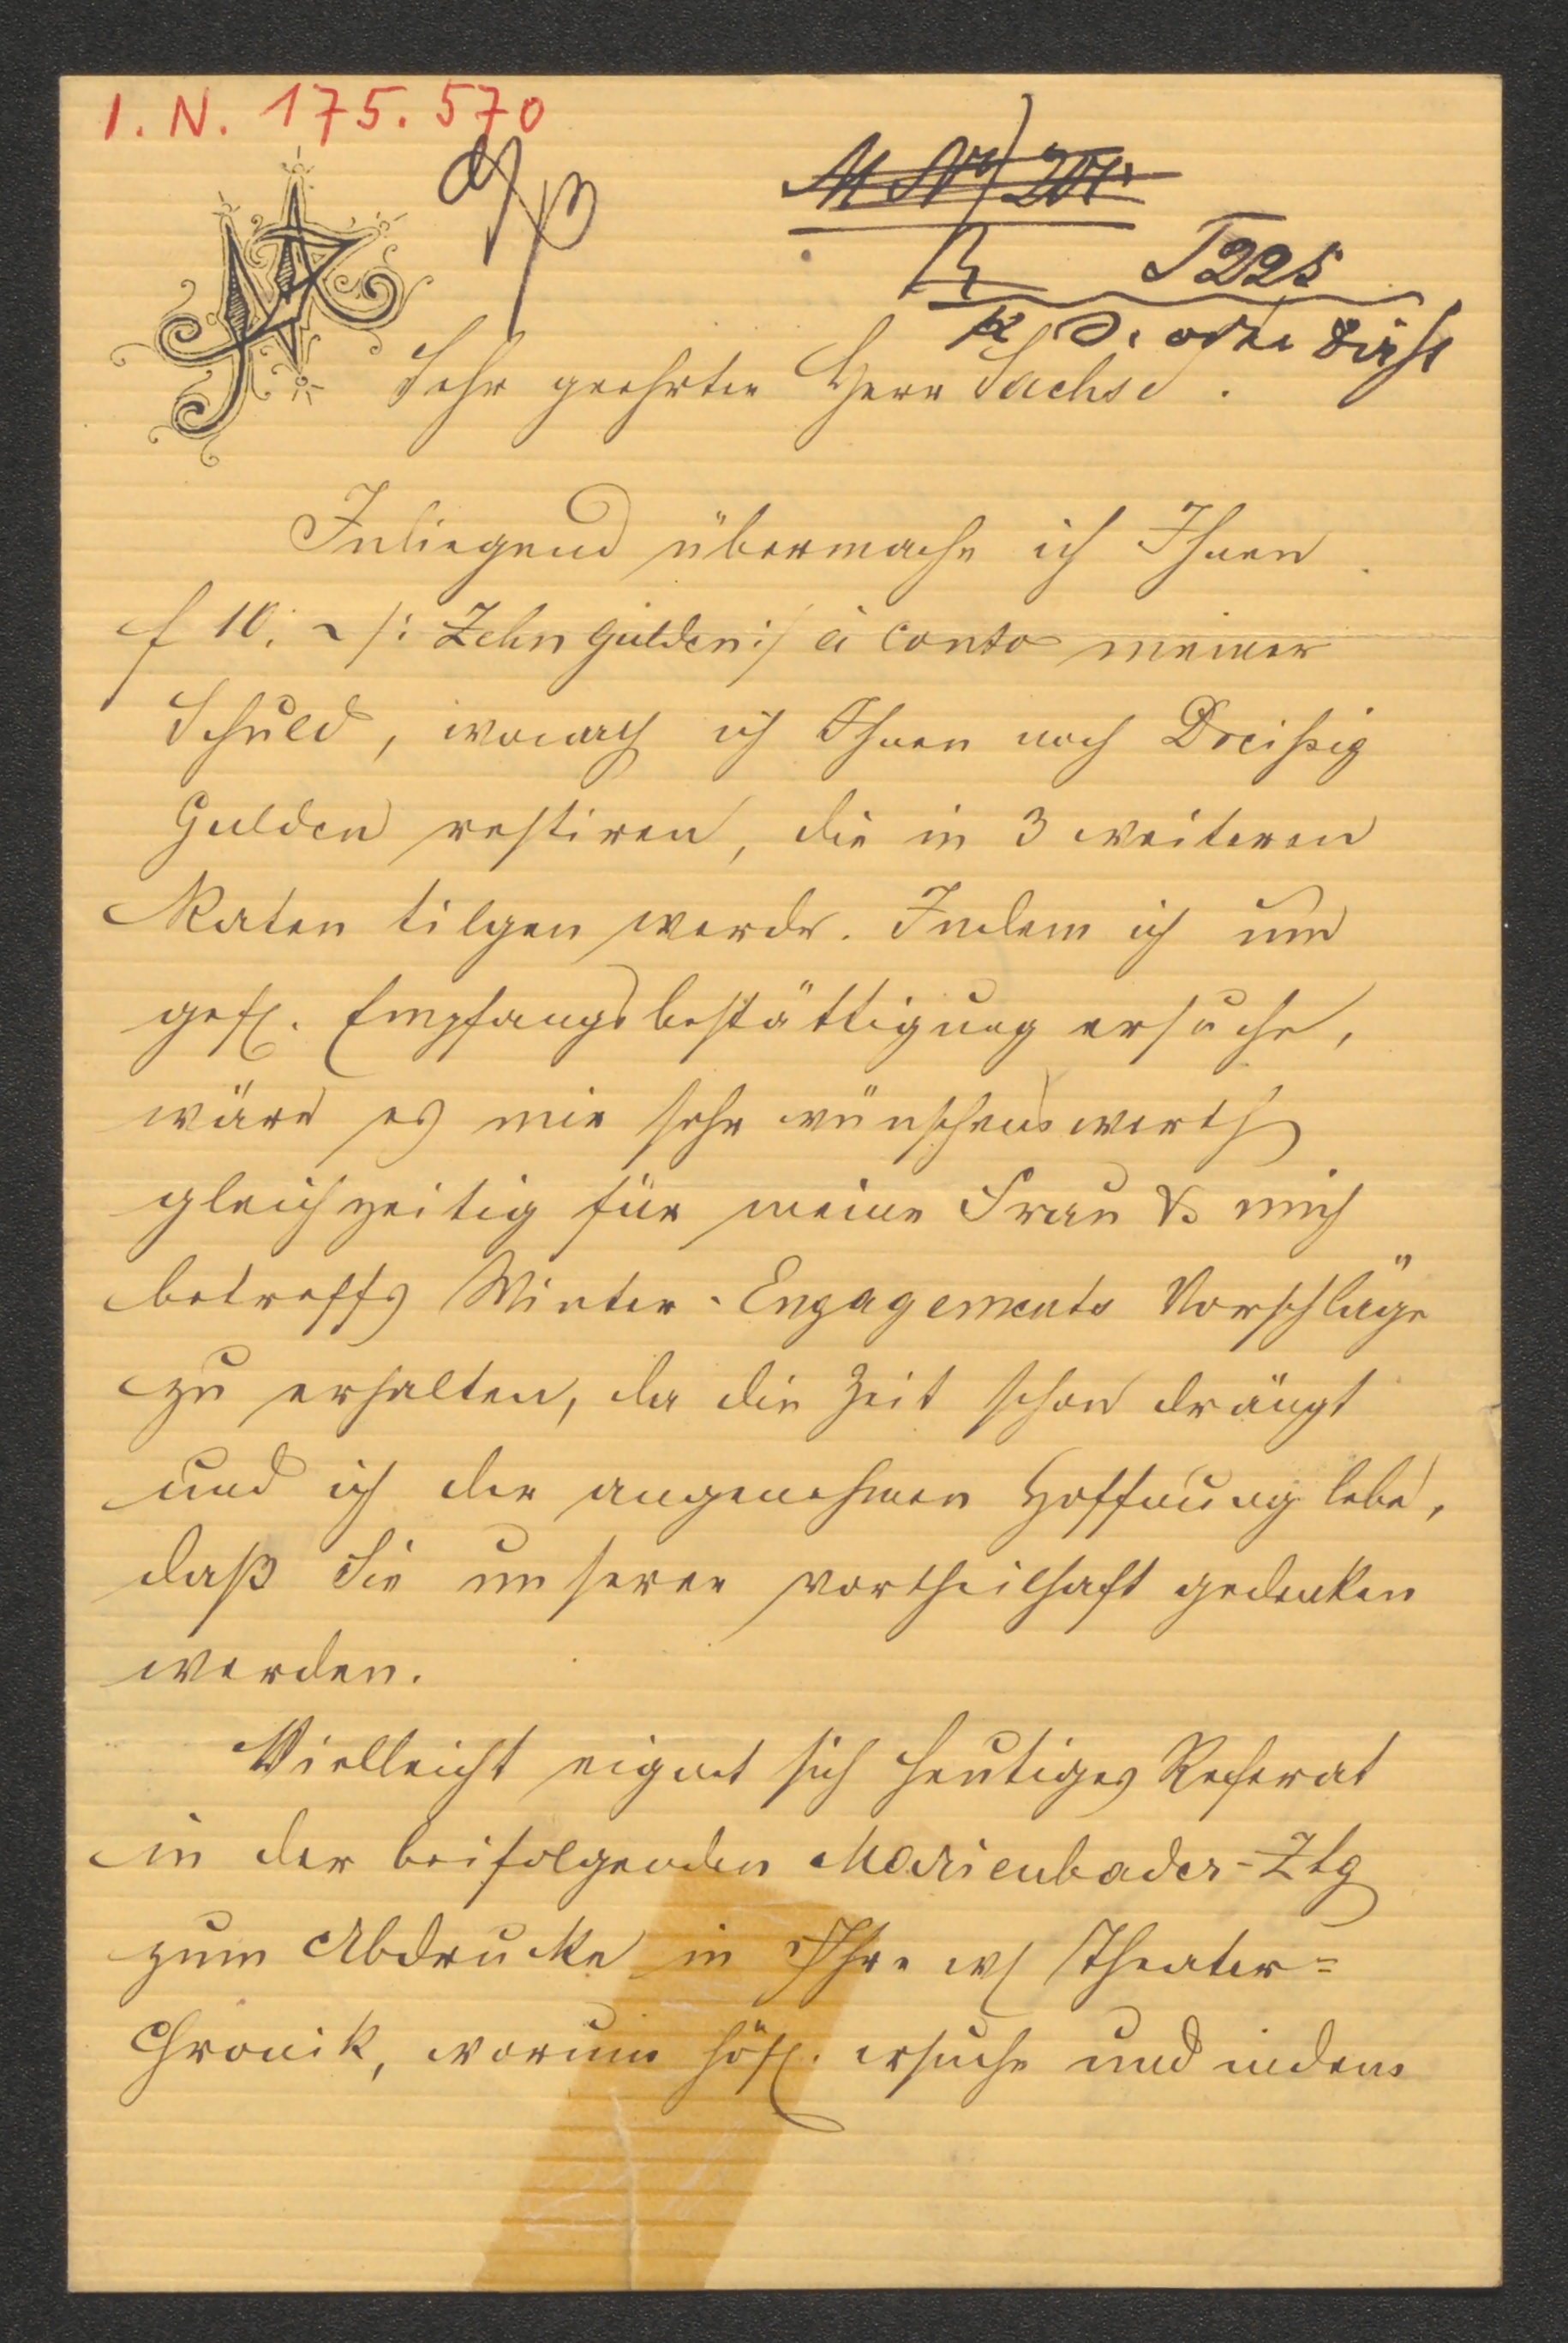 I. N. 175.570
T 225
Sehr geehrter Herr Sachse.
Inliegend übermache ich Ihnen
f 10. ~ /: Zehn Gulden :/ à Conto meiner
Schuld, wonach ich Ihnen noch Dreißig
Gulden restiren, die in 3 weiteren
Raten tilgen werde. Indem ich um
gefl. Empfangsbestättigung ersuche,
wäre es mir sehr wünschenswerth
gleichzeitig für meine Frau & mich
betreffs Winter-Engagements Vorschläge
zu erhalten, da die Zeit schon drängt
und ich der angenehmen Hoffnung lebe,
daß Sie unserer vortheilhaft gedenken
werden.
Vielleicht eignet sich heutiges Referat
in der beifolgenden Marienbader-Ztg
zum Abdrucke in Ihre w/ Theater=
Chronik, worum höfl. ersuche und indem